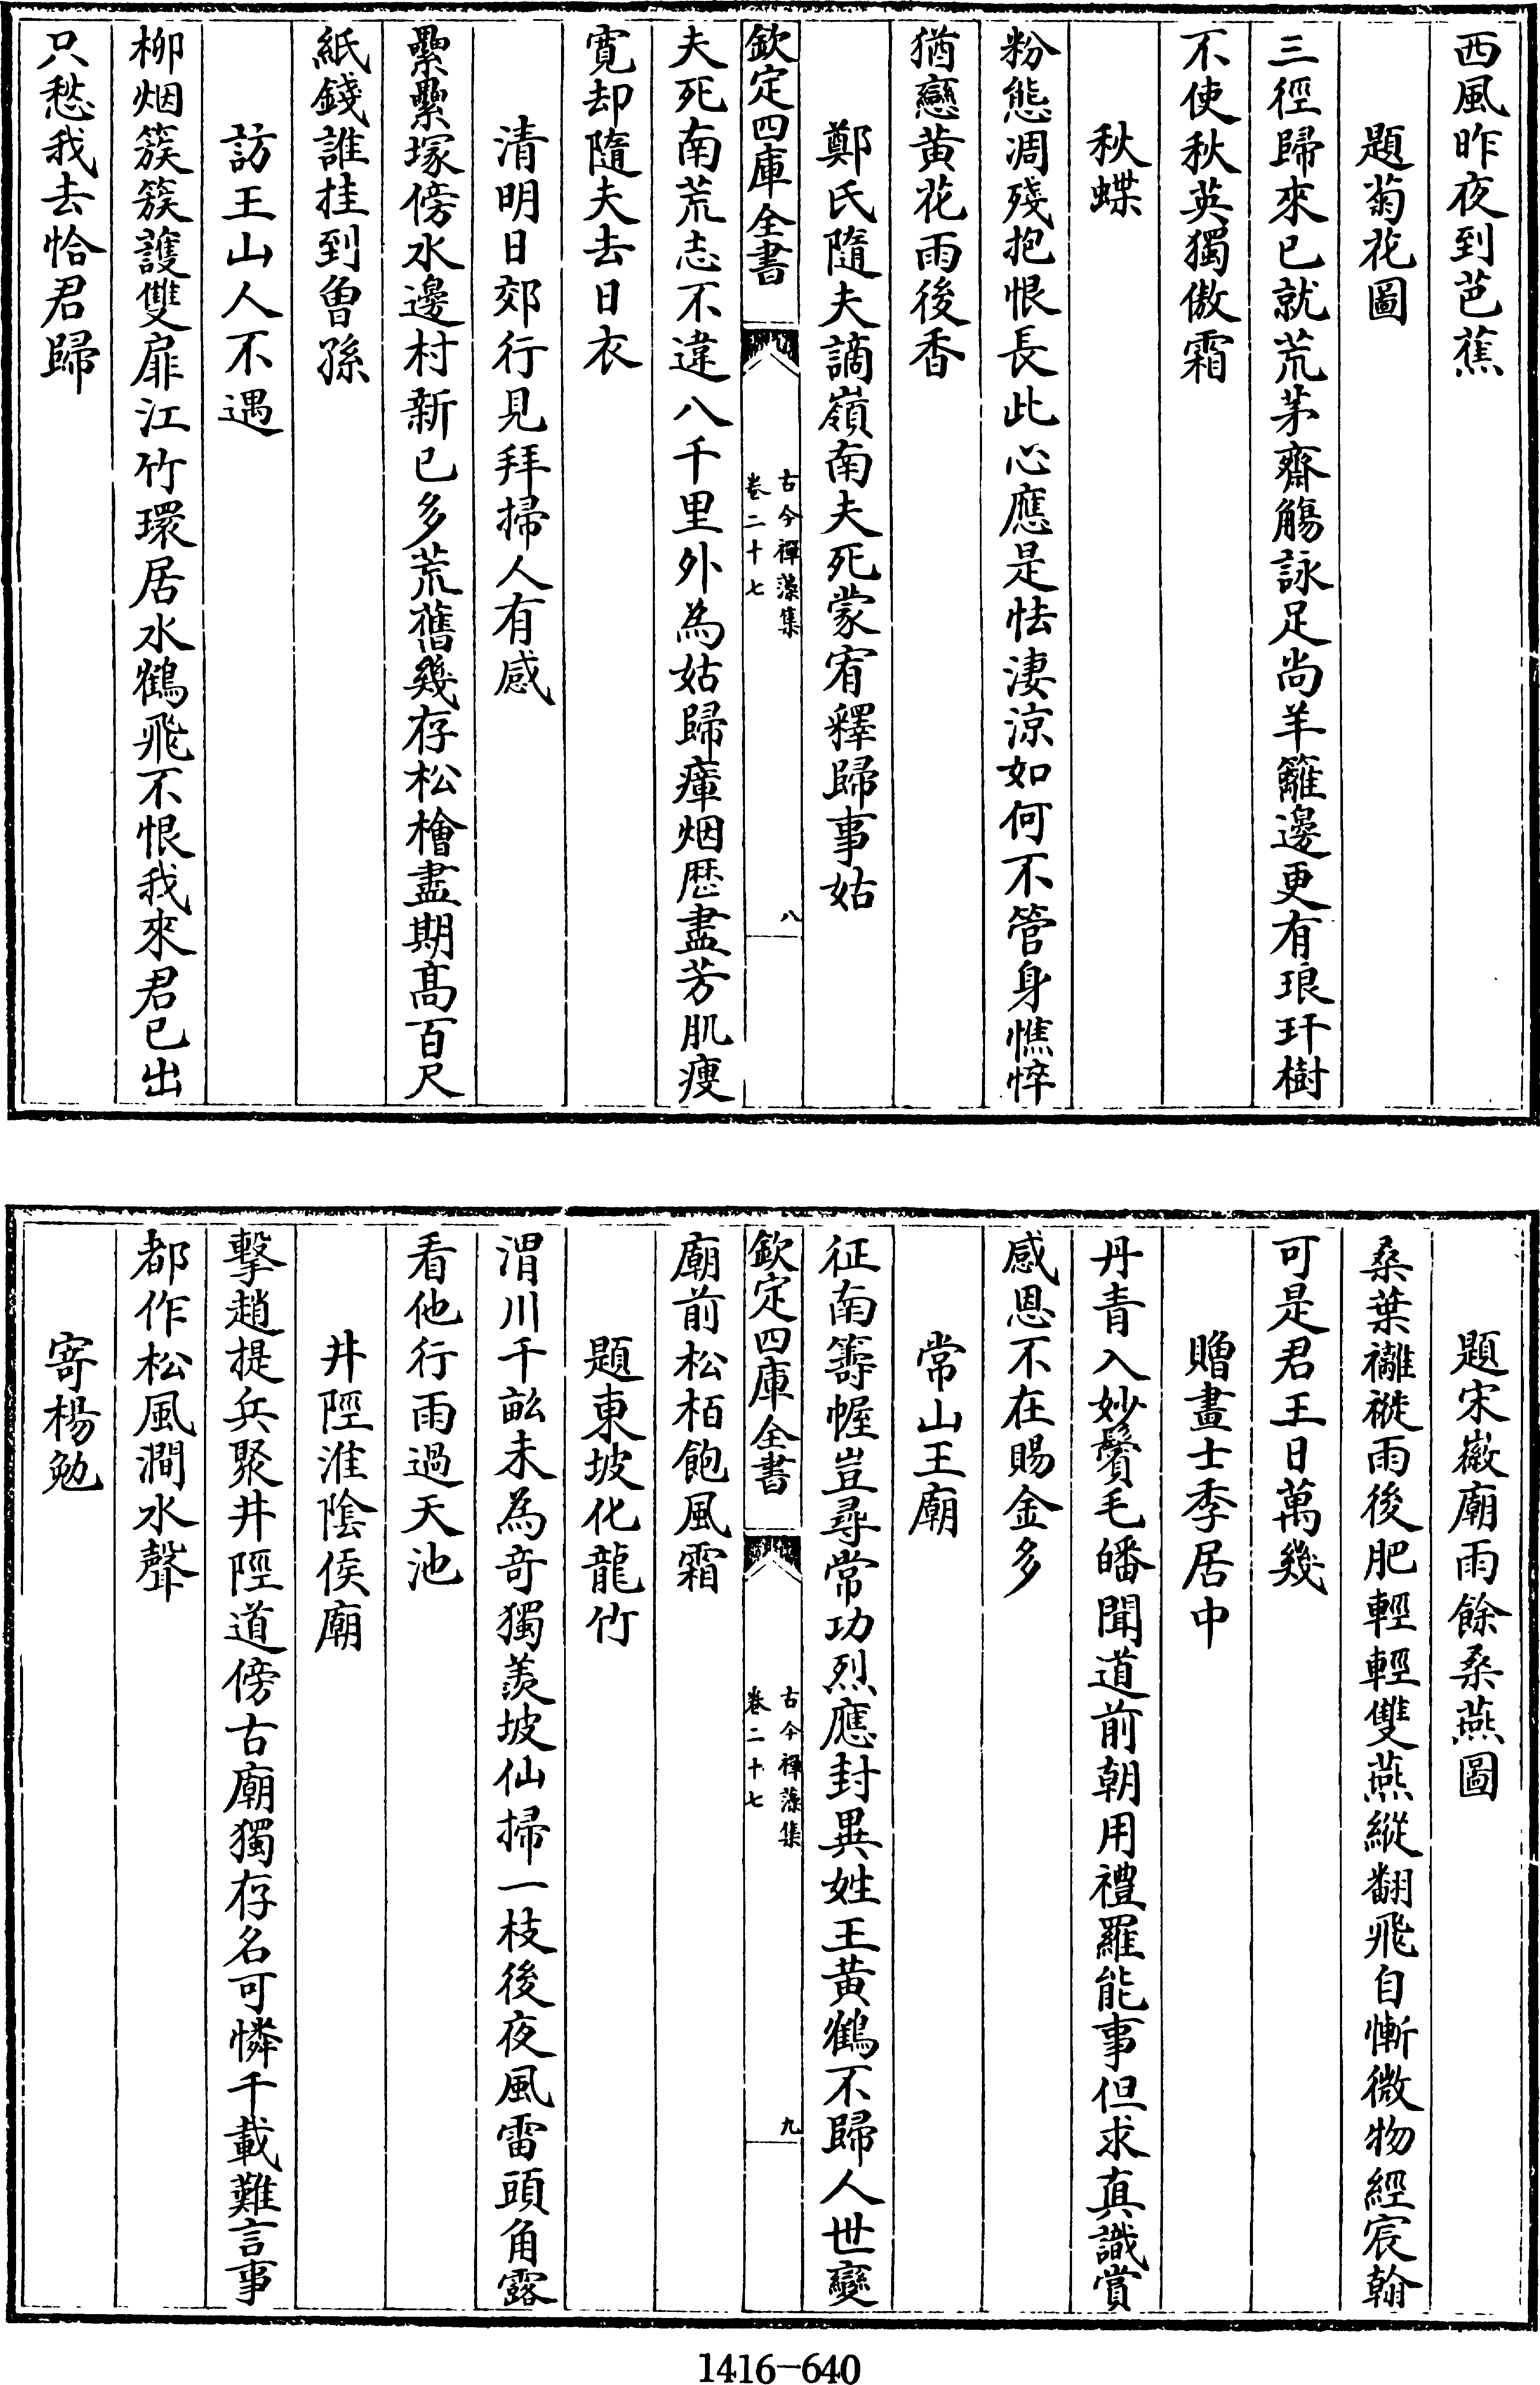 西風昨夜到芭蕉
題菊花圖
三徑歸來已就荒茅齋觴詠足尚羊籬邊更有琅玕樹
不使秋英獨傲霜
秋蝶
粉態凋殘抱恨長此心應是怯淒涼如何不管身憔悴
猶戀黄花雨後香
鄭氏隨夫謫嶺南夫死蒙宥釋歸事姑
欽定四庫全書
古今禪藻集
卷二十七
八
夫死南荒志不違八千里外為姑歸瘴烟歷盡芳肌瘦
寛却隨夫去日衣
清明日郊行見拜掃人有感
纍纍塚傍水邊村新已多荒舊幾存松檜盡期髙百尺
紙錢誰挂到曾孫
訪王山人不遇
柳烟簇簇護雙扉江竹環居水鶴飛不恨我來君已出
只愁我去恰君歸
題宋徽廟雨餘桑燕圖
桑葉襳褷雨後肥輕輕雙燕縱翻飛自慚微物經宸翰
可是君王日萬幾
贈畫士季居中
丹青入妙鬢毛皤聞道前朝用禮羅能事但求真識賞
感恩不在賜金多
常山王廟
征南籌幄豈尋常功烈應封異姓王黄鶴不歸人世變
欽定四庫全書
古今禪藻集
卷二十七
九
廟前松栢飽風霜
題東坡化龍竹
渭川千畝未為竒獨羨坡仙掃一枝後夜風雷頭角露
看他行雨過天池
井陘淮陰侯廟
擊趙提兵聚井陘道傍古廟獨存名可憐千載難言事
都作松風澗水聲
寄楊勉
1416-640